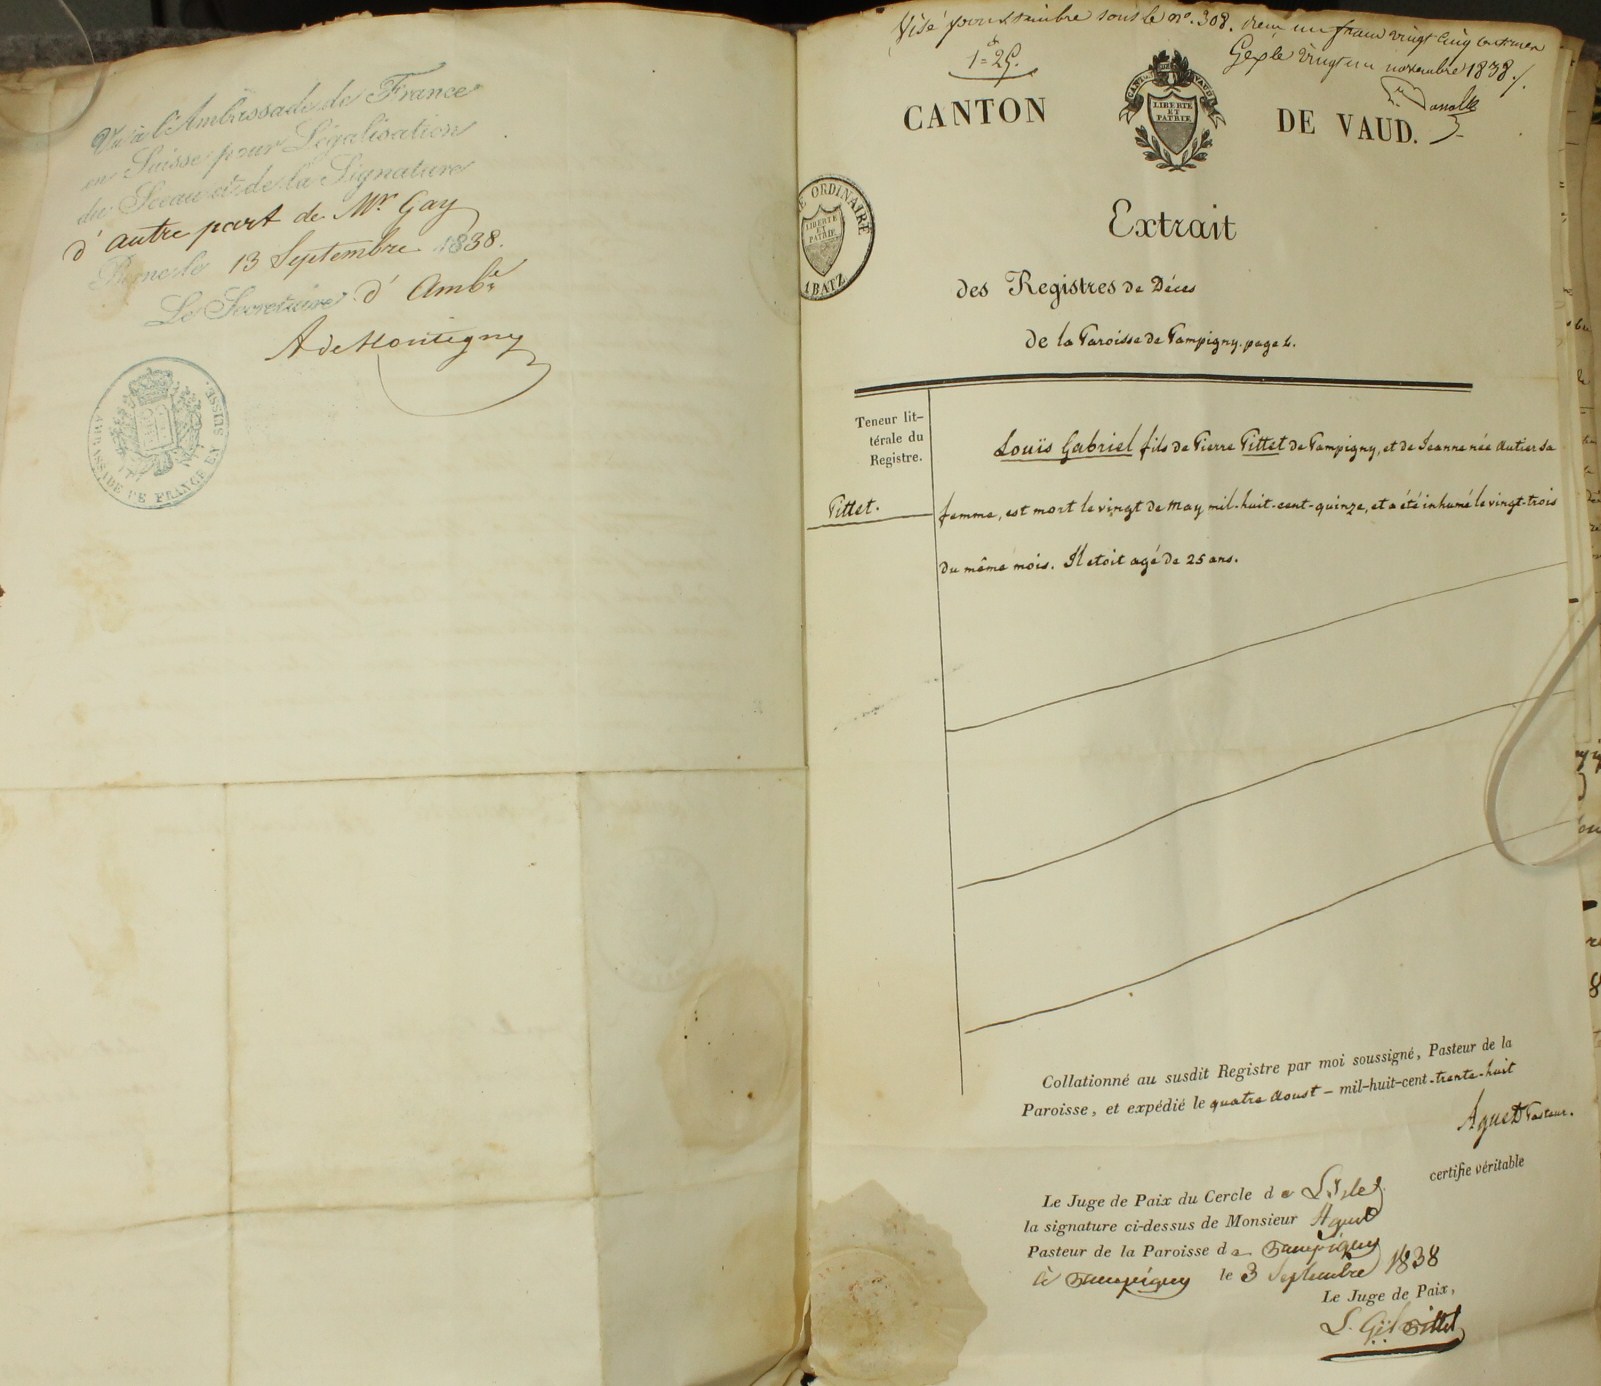 Vu à l'Ambassade de France
en Suisse pour Légalisation
du Sceau et de la Signature
d'autre part de Mr Gay
Berne le 13 Septembre 1838.
Le Secrétaire d'Ambe
A de Montigny
AMBASSADE DE FRANCE EN SUISSE.
Visé pour timbre sous le no. 308. un franc vingt cinq centimes
1=25.
Gex le vingt un novembre 1838
CANTON DE VAUD
LIBERTE
ET
PATRIE
CANTON DE VAUD.
ORDINAIRE
LIBERTE
ET
PATRIE
Extrait
des Registres de Déces
de la Paroisse de Pampigny. page 4.
Teneur lit-
térale du
Registre.
Pittet.
Louïs Gabriel fils de Pierre Pittet de Pampigny, et de Jeanne née Autier sa
femme, est mort le vingt de May mil-huit-cent-quinze, et a été inhumé le vingt-trois
du même mois. Il etoit agé de 25 ans.
Collationné au susdit Registre par moi soussigné, Pasteur de la
Paroisse, et expédié le quatre Aoust - mil-huit-cent-trente-huit
Aguet Pasteur.
Le Juge de Paix du Cercle de L'Isle certifie véritable
la signature ci-dessus de Monsieur Aguet
Pasteur de la Paroisse de Pampigny
à Pampigny le 3 Septembre 1838
Le Juge de Paix,
Pittet